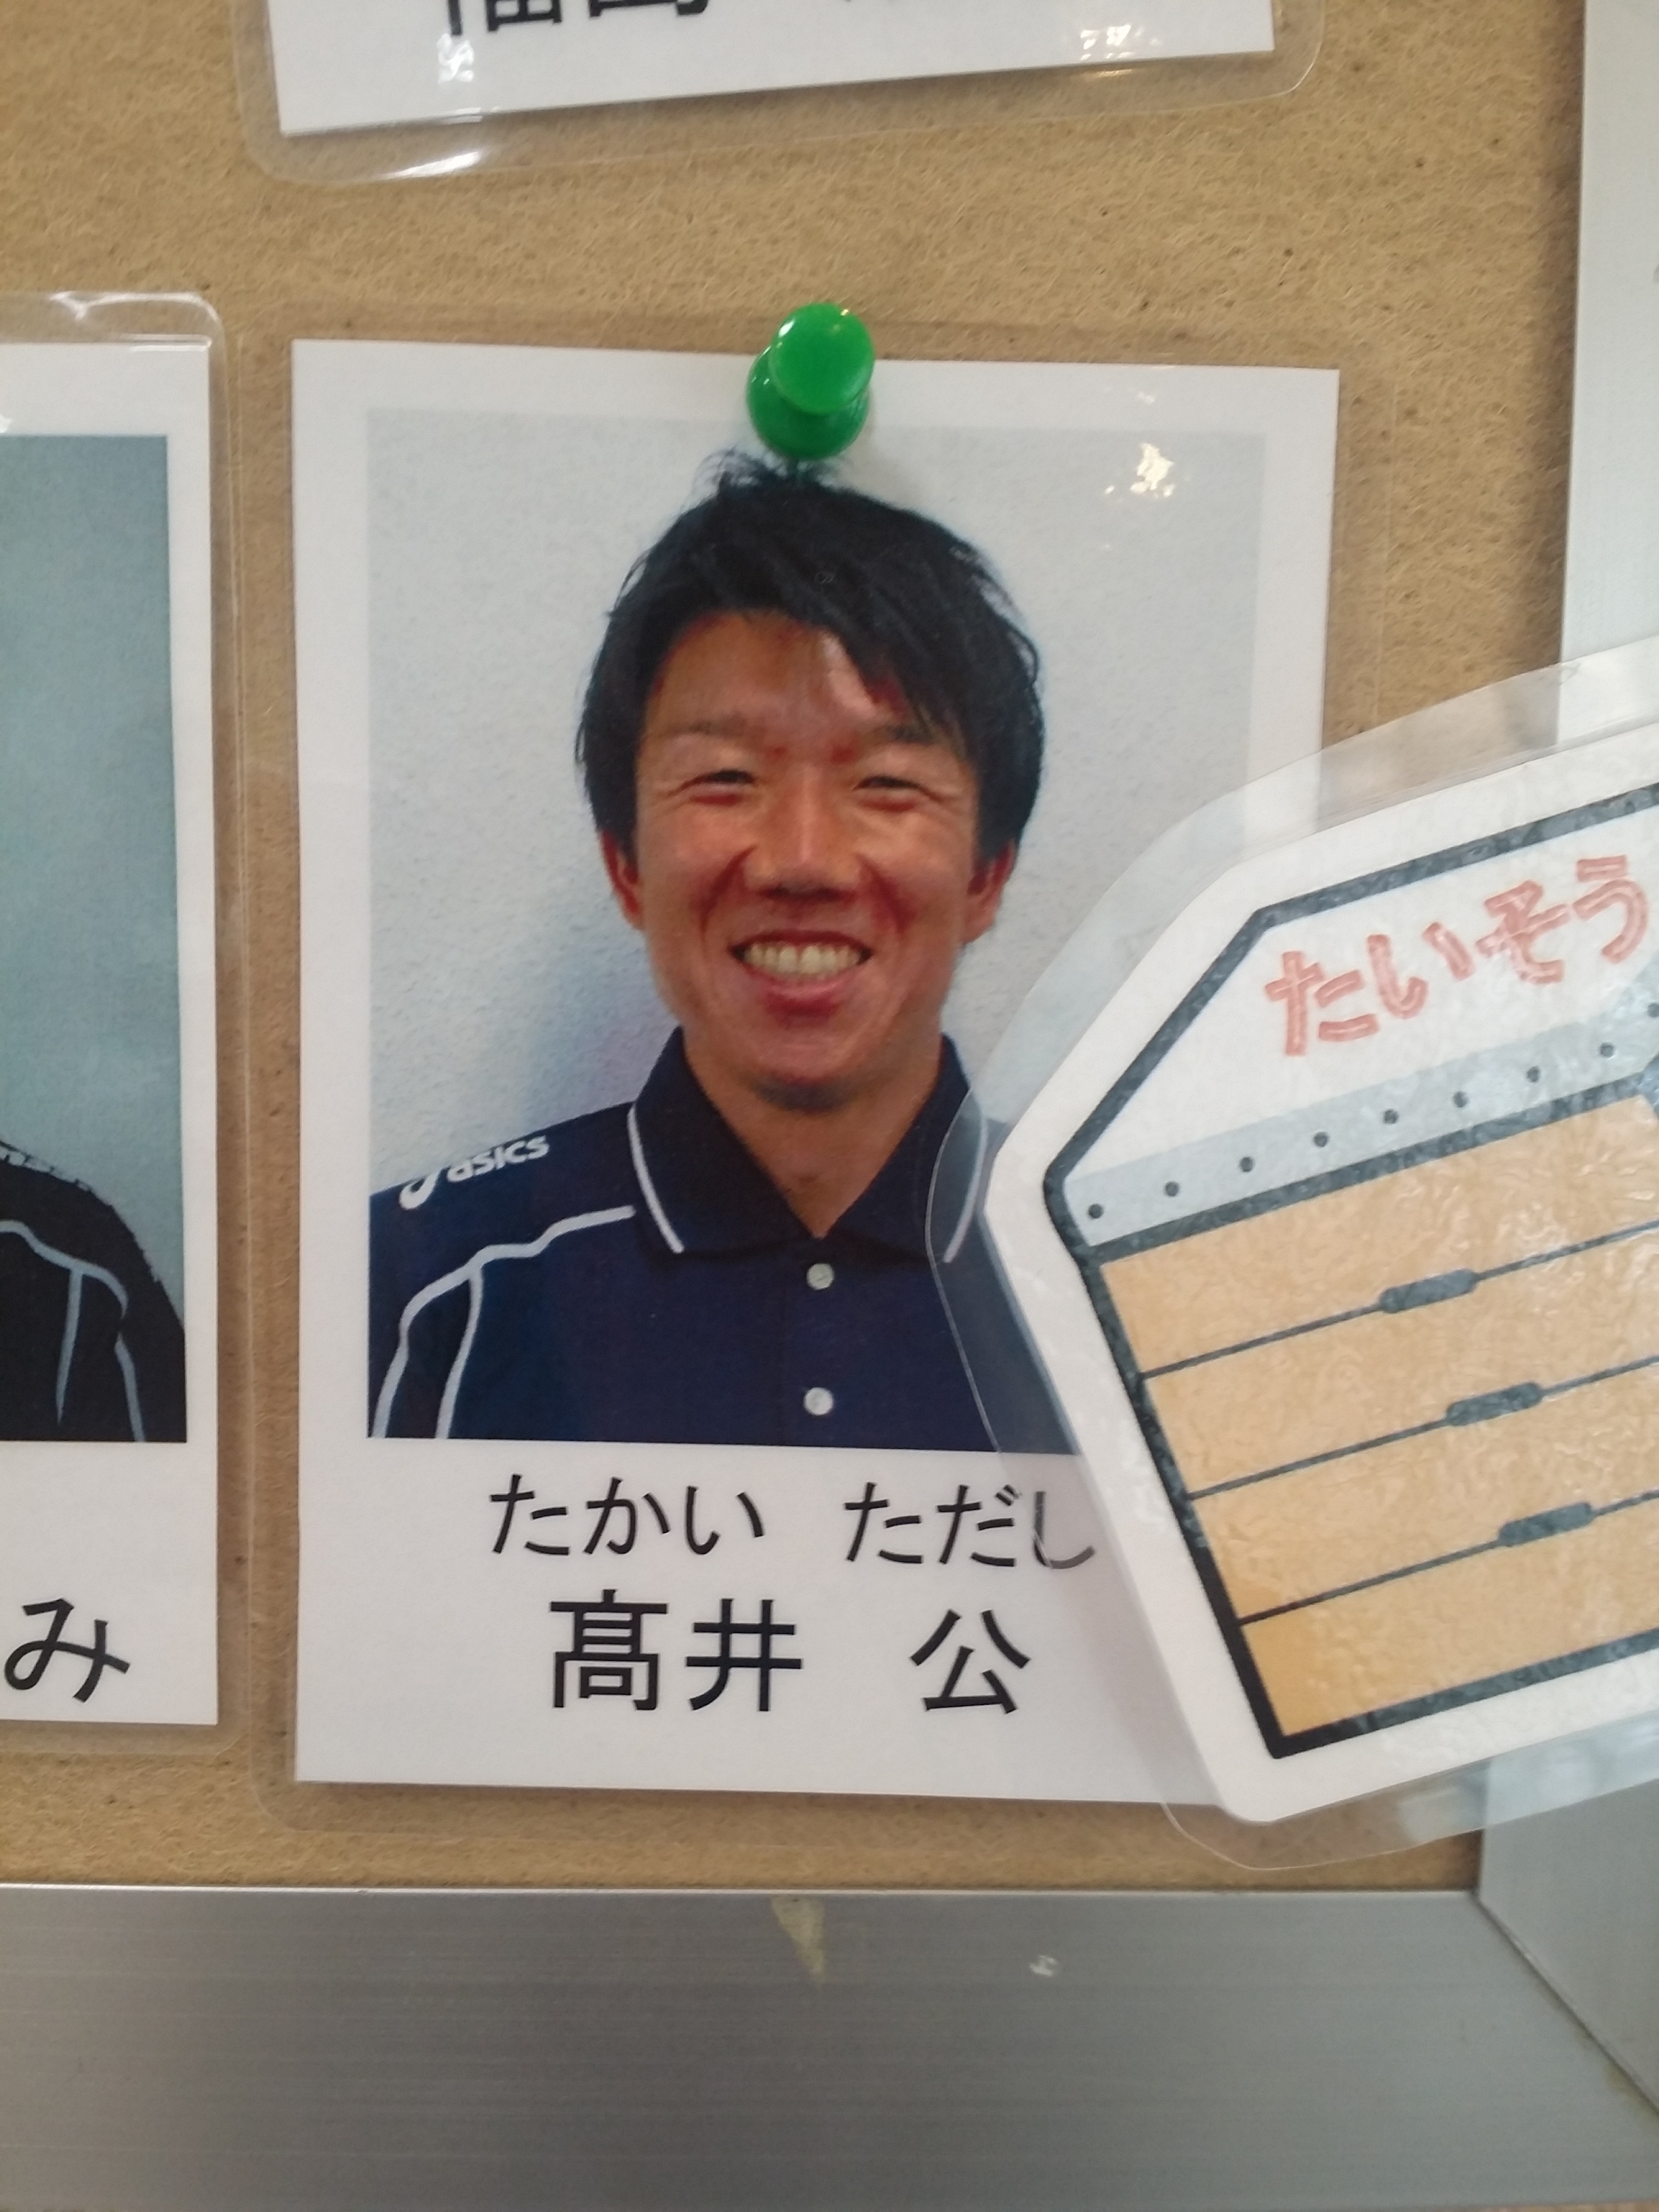 asics
たいそう
たかい ただし
髙井 公
み